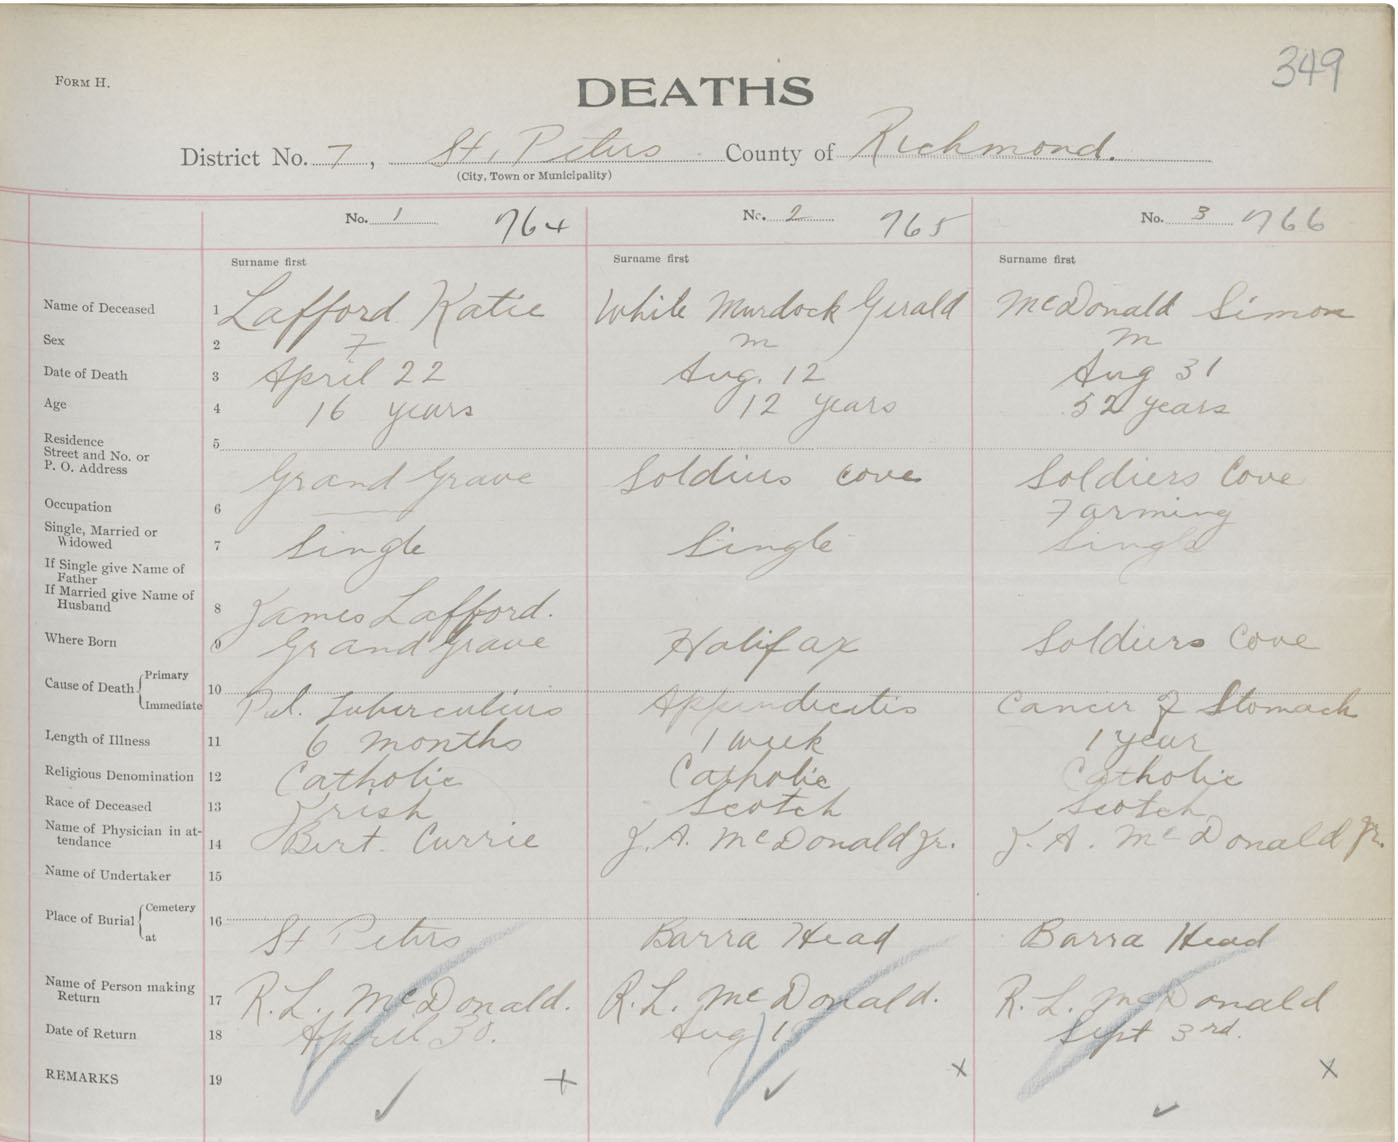 349
FORM H.
DEATHS
District No. 7, St. Peters County of Richmond.
(City, Town or Municipality)
No. 1 764 No. 2 765 No. 3 766
Surname first Surname first Surname first
Name of Deceased 1 Lafford Katie White Murdock Gerald McDonald Simon
Sex 2 F m m
Date of Death 3 April 22 Aug. 12 Aug 31
Age 4 16 years 12 years 52 years
Residence 5
Street and No. or
P. O. Address Grand Grave Soldiers Cove Soldiers Cove
Occupation 6 — Farming
Single, Married or
Widowed 7 Single Single Single
If Single give Name of
Father
If Married give Name of
Husband 8 James Lafford.
Where Born 9 Grand Grave Halifax Soldiers Cove
Cause of Death { Primary 10
Immediate Pul. Tuberculius Appendicitis Cancer of Stomach
Length of Illness 11 6 months 1 week 1 year
Religious Denomination 12 Catholic Catholic Catholic
Race of Deceased 13 Irish Scotch Scotch
Name of Physician in at-
tendance 14 Bert. Currie J. A. McDonald Jr. J. A. McDonald Jr.
Name of Undertaker 15
Place of Burial { Cemetery 16
at St Peters Barra Head Barra Head
Name of Person making
Return 17 R. L. McDonald. R. L. McDonald. R. L. McDonald
Date of Return 18 April 30. Aug Sept 3rd.
REMARKS 19 + x x
✓ ✓ ✓